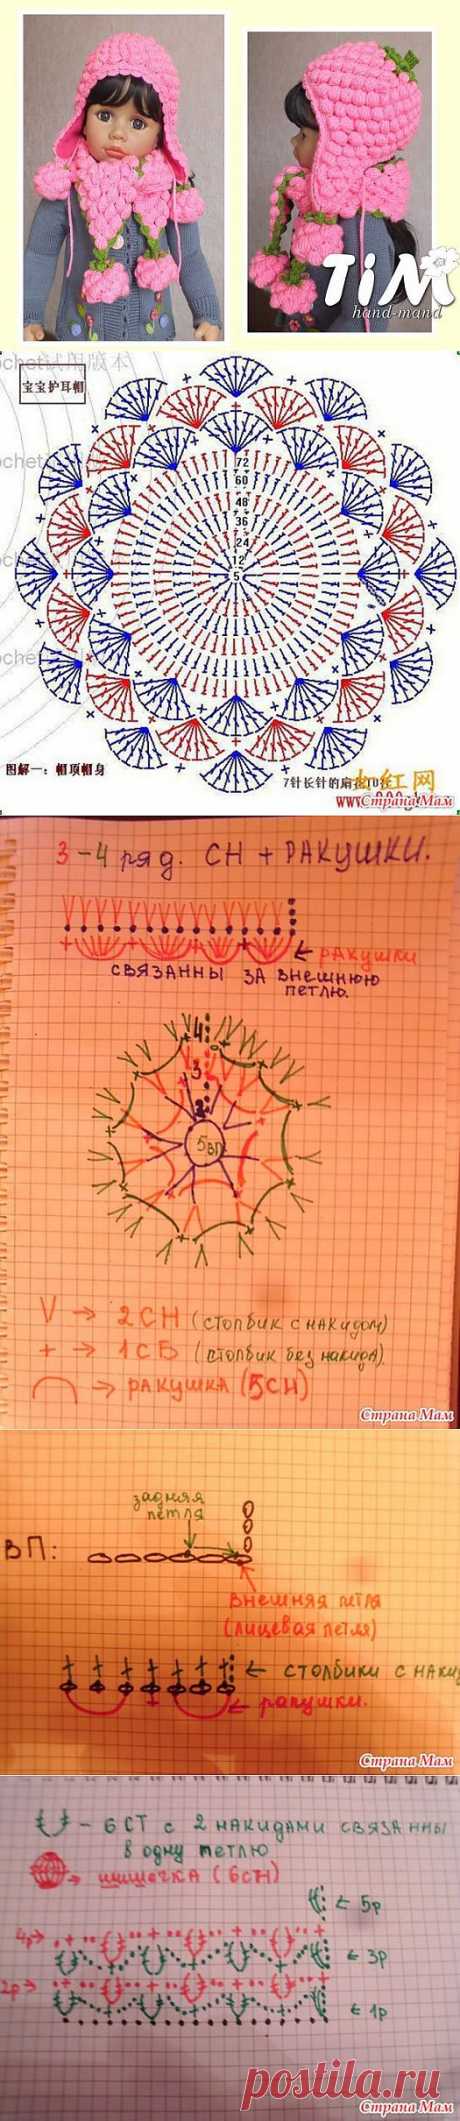 TiM
hand-mand
ochet试用版本
宝宝护耳帽
72
60
48
36
24
12
5
图解一：帽顶帽身
7针长针的扇花10花
Страна Мам
3-4 ряд. СН + РАКУШКИ.
← ракушки
СВЯЗАННЫ ЗА ВНЕШНЮЮ
ПЕТЛЮ.
4
3
2
5ВП
V → 2СН (столбик с накидом)
+ → 1СБ (столбик без накида).
→ РАКУШКА (5СН)
Страна Мам
задняя
петля
ВП:
внешняя петля
(лицевая петля)
← столбики с наки
ракушки.
Страна Мам
- 6СТ с 2 НАКИДАМИ СВЯЗАННЫ
в одну петлю
→ шишечка (6СН)
← 5р
4р→
← 3р
2р→
← 1р
postila.ru
Страна Мам